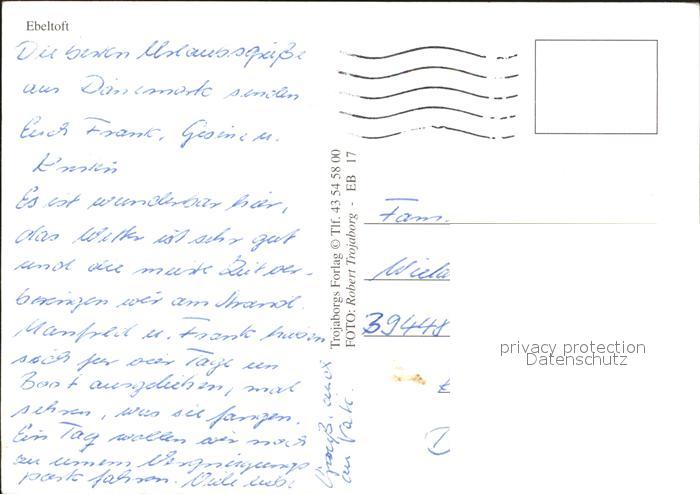 Ebeltoft
Die besten Urlaubsgrüße
aus Dänemark senden
Euch Frank, Gesine u.
Es ist wunderbar hier,
das Wetter ist sehr gut
und die meiste Zeit ver-
bringen wir am Strand.
Manfred u. Frank haben
sich für vier Tage ein
Boot ausgeliehen, mal
sehen, was sie fangen.
Ein Tag wollen wir noch
zu einem Vergnügungs
park fahren. Viele liebe
Grüße auch
an
Trojaborgs Forlag © Tlf. 43 54 58 00
FOTO: Robert Trojaborg - EB 17
Fam.
39448
privacy protection
Datenschutz